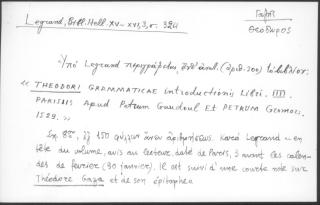 Legrand, Bibl. Hell. XV-XVI, 3, σ. 324
Γαζῆ
Θεόδωρος
Ὑπὸ Legrand περιγράφεται, (ἀριθ. 309) τὸ βιβλίον:
« THEODORI GRAMMATICAE introductionis Libri. IIII.
PARISIIS Apud Petrum Gaudoul ET PETRUM Gromors.
1529. »
Εἰς 8ον, 150 φύλλων ἄνευ ἀριθμήσεως κατὰ Legrand « en
tête du volume, avis au lecteur, daté de Paris, 3 avant les calen-
des de février (30 janvier). Il est suivi d'une courte note sur
Théodore Gaza et de son épitaphe »